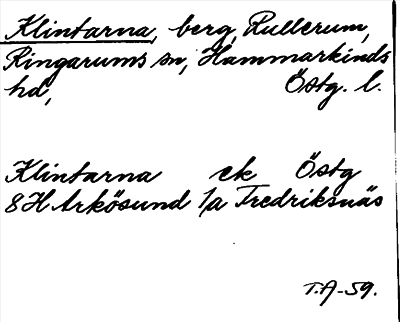 Klintarna, berg, Rullerum,
Ringarums sn, Hammarkinds
hd, Östg. l.
Klintarna ek Östg
8H Arkösund 1a Fredriksnäs
T.A-59.